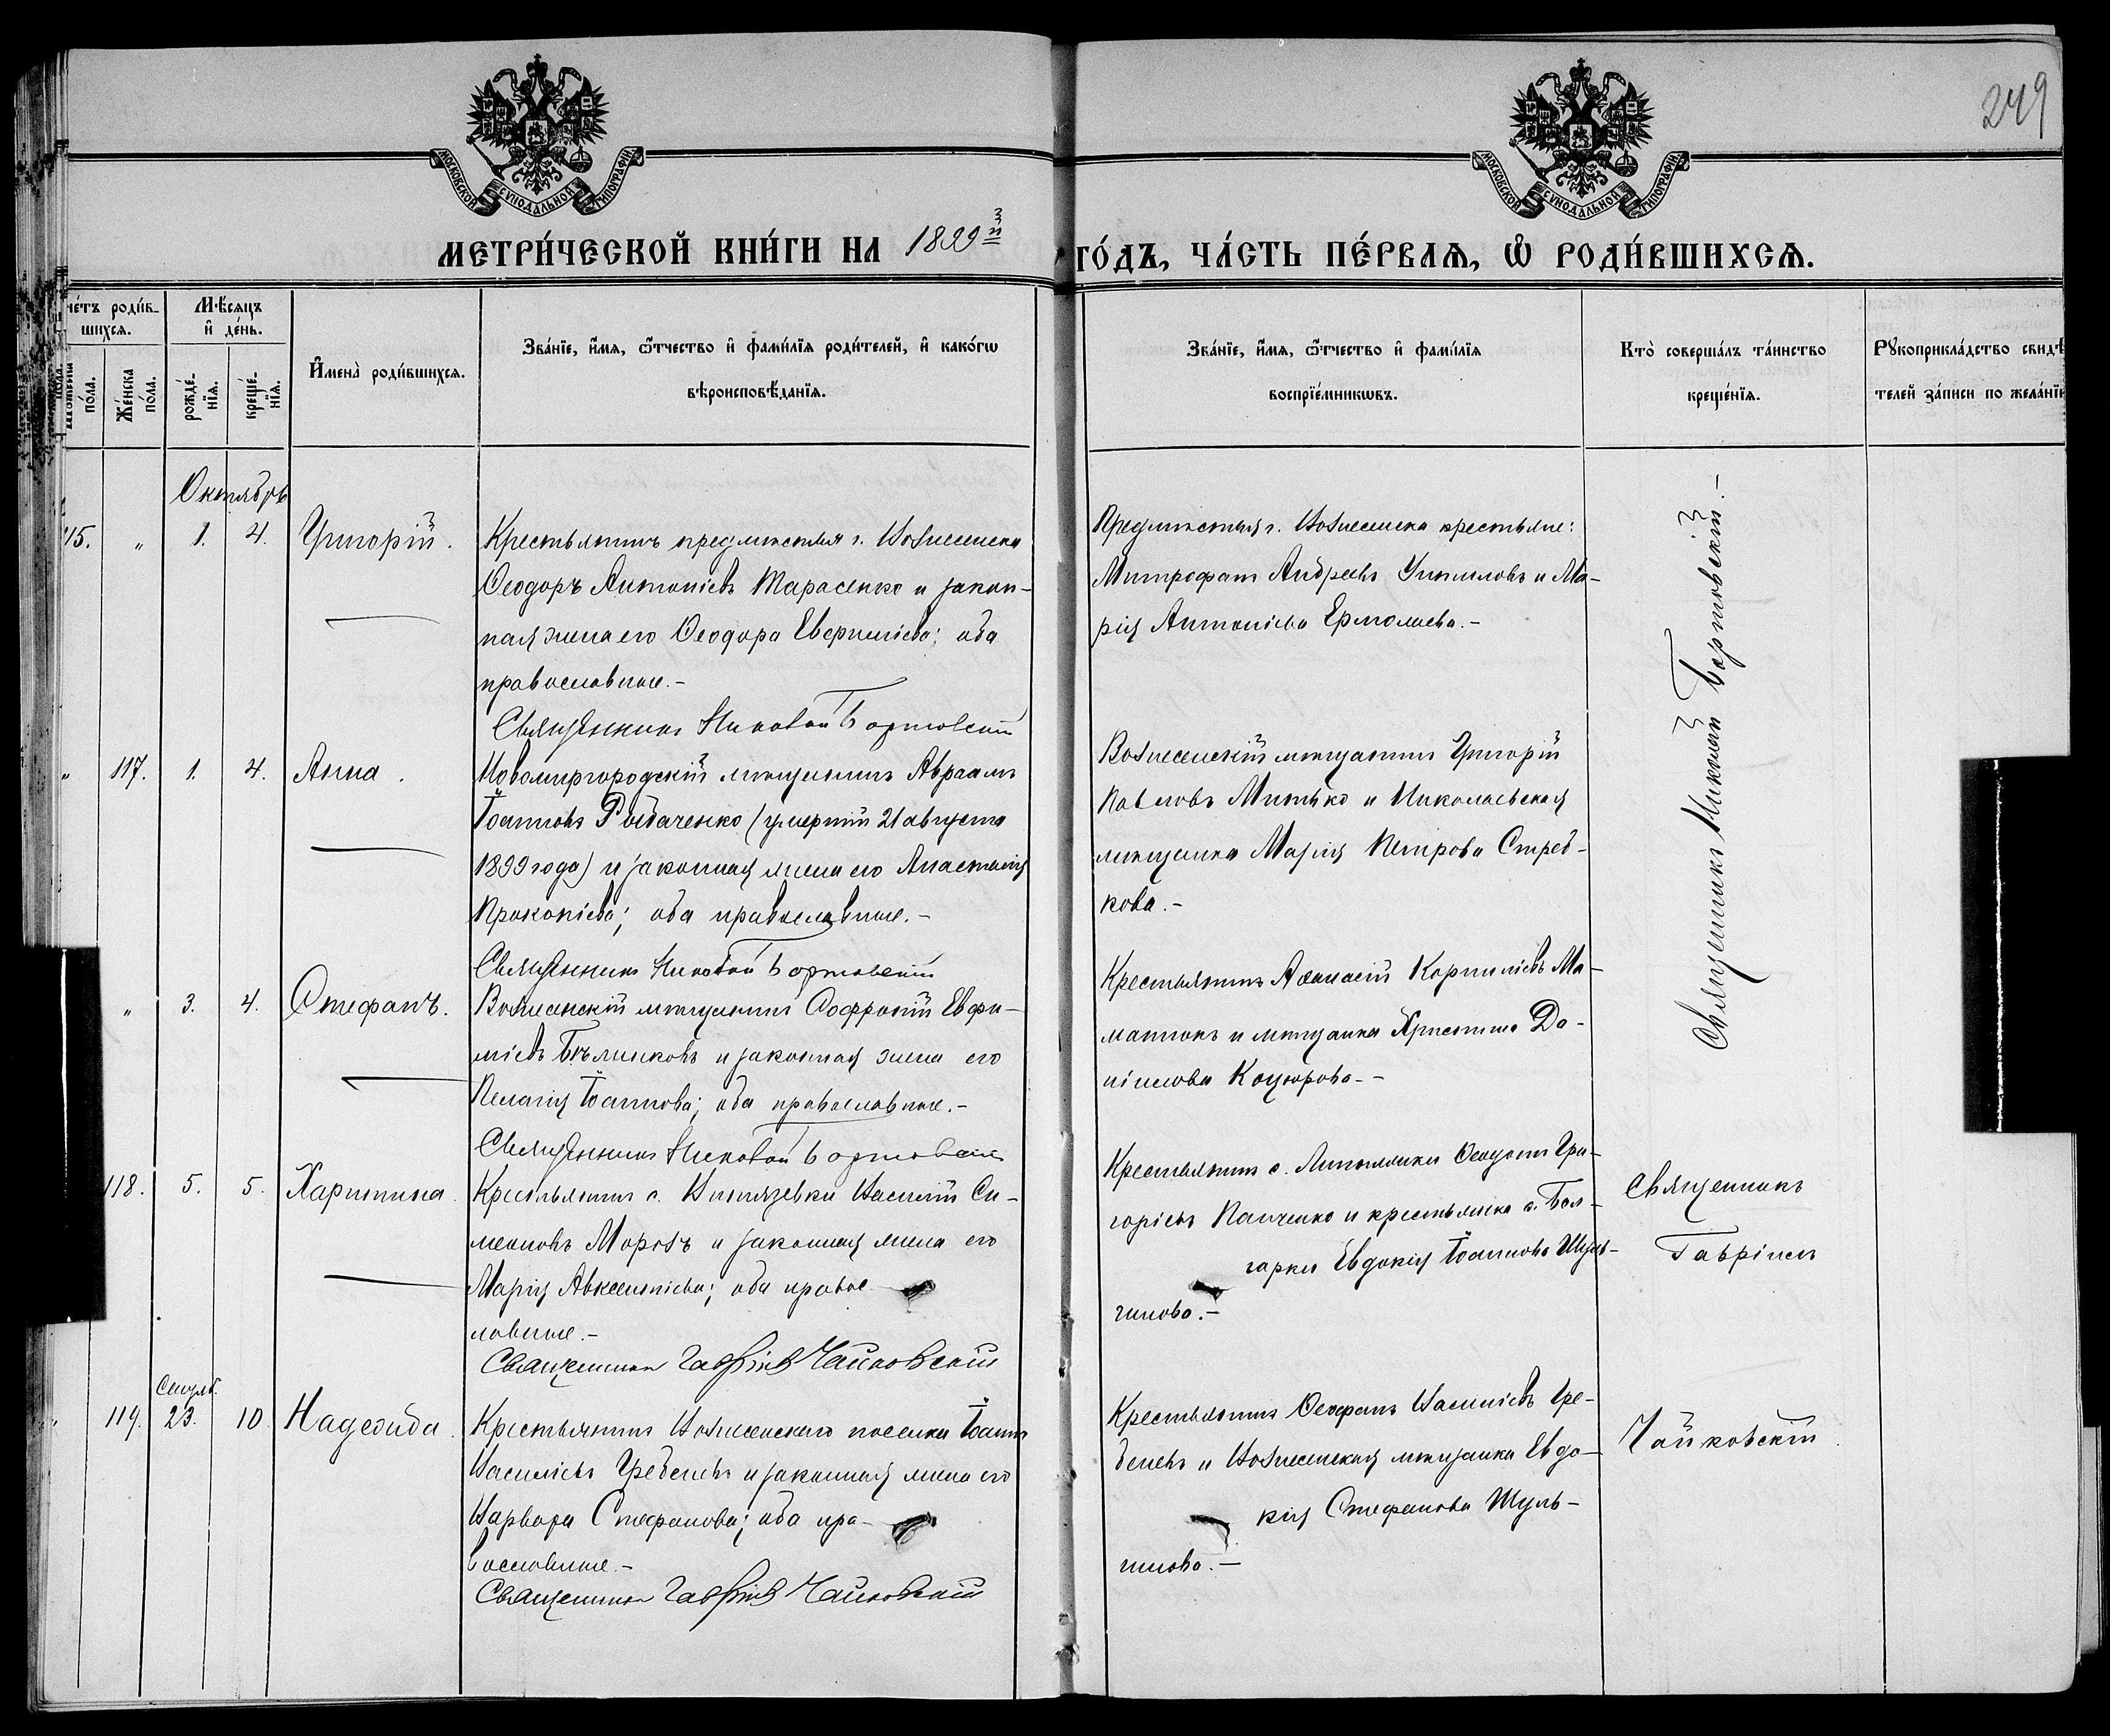 249
МОСКОВСКОЙ СѴНОДАЛЬНОЙ ТИПОГРАФІИ
МОСКОВСКОЙ СѴНОДАЛЬНОЙ ТИПОГРАФІИ
МЕТРИ́ЧЕСКОЙ КНИ́ГИ НА 1899й ГО́ДЪ, ЧА́СТЬ ПЕ́РВАѦ, Ѡ҆ РОДИ́ВШИХСѦ.
че́тъ роди́в-
шихсѧ.
по́ла.
Же́нска
по́ла.
Мѣ́сяцъ
и҆ де́нь.
рожде́-
нїѧ.
креще́-
нїѧ.
И҆мена̀ роди́вшихсѧ.
Зва́нїе, и҆́мѧ, ѻ҆́тчество и҆ фами́лїѧ роди́телей, и҆ како́гѡ
вѣроисповѣ́данїѧ.
Зва́нїе, и҆́мѧ, ѻ҆́тчество и҆ фами́лїѧ
воспрїе́мникѡвъ.
Кто̀ соверша́лъ та́инство
креще́нїѧ.
Рꙋкоприкла́дство свидѣ́
телей за́писи по жела́нїю
Октябрь
115. „ 1. 4. Григорій.
Крестьянинъ предмѣстья г. Вознесенска
Ѳеодоръ Антоніевъ Тарасенко и закон-
ная жена его Ѳеодора Евгеніева; оба
православные.-
Священникъ Николай Бортовскій
Предмѣстья г. Вознесенска крестьяне:
Митрофанъ Андреевъ и Ма-
рія Антоніева Ермолаева.-
Священникъ Николай Бортовскій.-
„ 117. 1. 4. Анна.
Новомиргородскій мѣщанинъ Авраамъ
Іоанновъ Рыбаченко (умершій 21 августа
1899 года) и законная жена его Анастасія
Прокопіева; оба православные.-
Священникъ Николай Бортовскій
Вознесенскій мѣщанинъ Григорій
Павловъ Митько и Николаевская
мѣщанка Марія Петрова Стреб-
кова.-
„ 3. 4. Стефанъ.
Вознесенскій мѣщанинъ Софроній Евфи-
міевъ Бѣлинковъ и законная жена его
Пелагія Іоаннова; оба православные.-
Священникъ Николай Бортовскій
Крестьянинъ Аѳанасій Корниліевъ Ма-
матюкъ и мѣщанка Христина Да-
ніилова Коцюрова.-
118. 5. 5. Харитина.
Крестьянинъ с. Василій Си-
меоновъ Морозъ и законная жена его
Марія Авксентіева; оба правос-
лавные.-
Священникъ Гавріилъ Чайковскій
Крестьянинъ с. Ѳеодотъ Гри-
горіевъ Панченко и крестьянка с. Бол-
гарки Евдокія Іоаннова Шуль-
гинова.-
Священникъ
Гавріилъ
Чайковскій
Сентяб.
„ 119. 23. 10. Надежда.
Крестьянинъ Вознесенскаго поселка Іоаннъ
Василіевъ Гребеневъ и законная жена его
Варвара Стефанова; оба пра-
вославные.-
Священникъ Гавріилъ Чайковскій
Крестьянинъ Ѳеофанъ Василіевъ Гре-
беневъ и Вознесенская мѣщанка Евдо-
кія Стефанова Шуль-
гинова.-